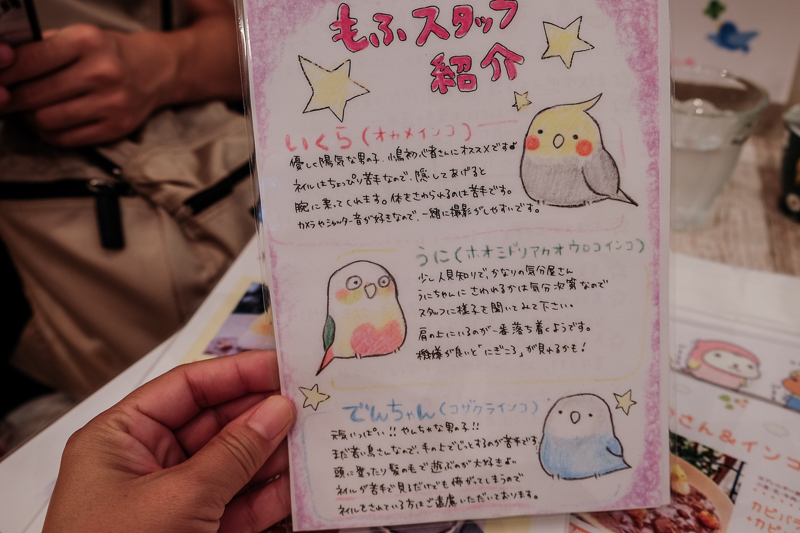 もふスタッフ
紹介
いくら(オカメインコ)
優しく陽気な男の子。小鳥初心者さんにオススメですよ
ネイルはちょっぴり苦手なので、隠してあげると
腕に乗ってくれます。体をさわられるのは苦手です。
カメラやシャッター音が好きなので、一緒に撮影がしやすいです。
うに(ホオミドリアカオウロコインコ)
少し人見知りで、かなりの気分屋さん
うにちゃんにさわれるかは気分次第なので
スタッフに様子を聞いてみて下さい。
肩の上にいるのが一番落ち着くようです。
機嫌が良いと「にぎころ」が見れるかも!
でんちゃん(コザクラインコ)
元気いっぱい!!やんちゃな男の子!!
まだ若い鳥さんなので、手の上でじっとするのが苦手です
頭に登ったり髪の毛で遊ぶのが大好きよ。
ネイルが苦手で見るだけでも怖がってしまうので
ネイルをされている方はご遠慮いただいております。
さん&インコ
カピバラ
・カピ